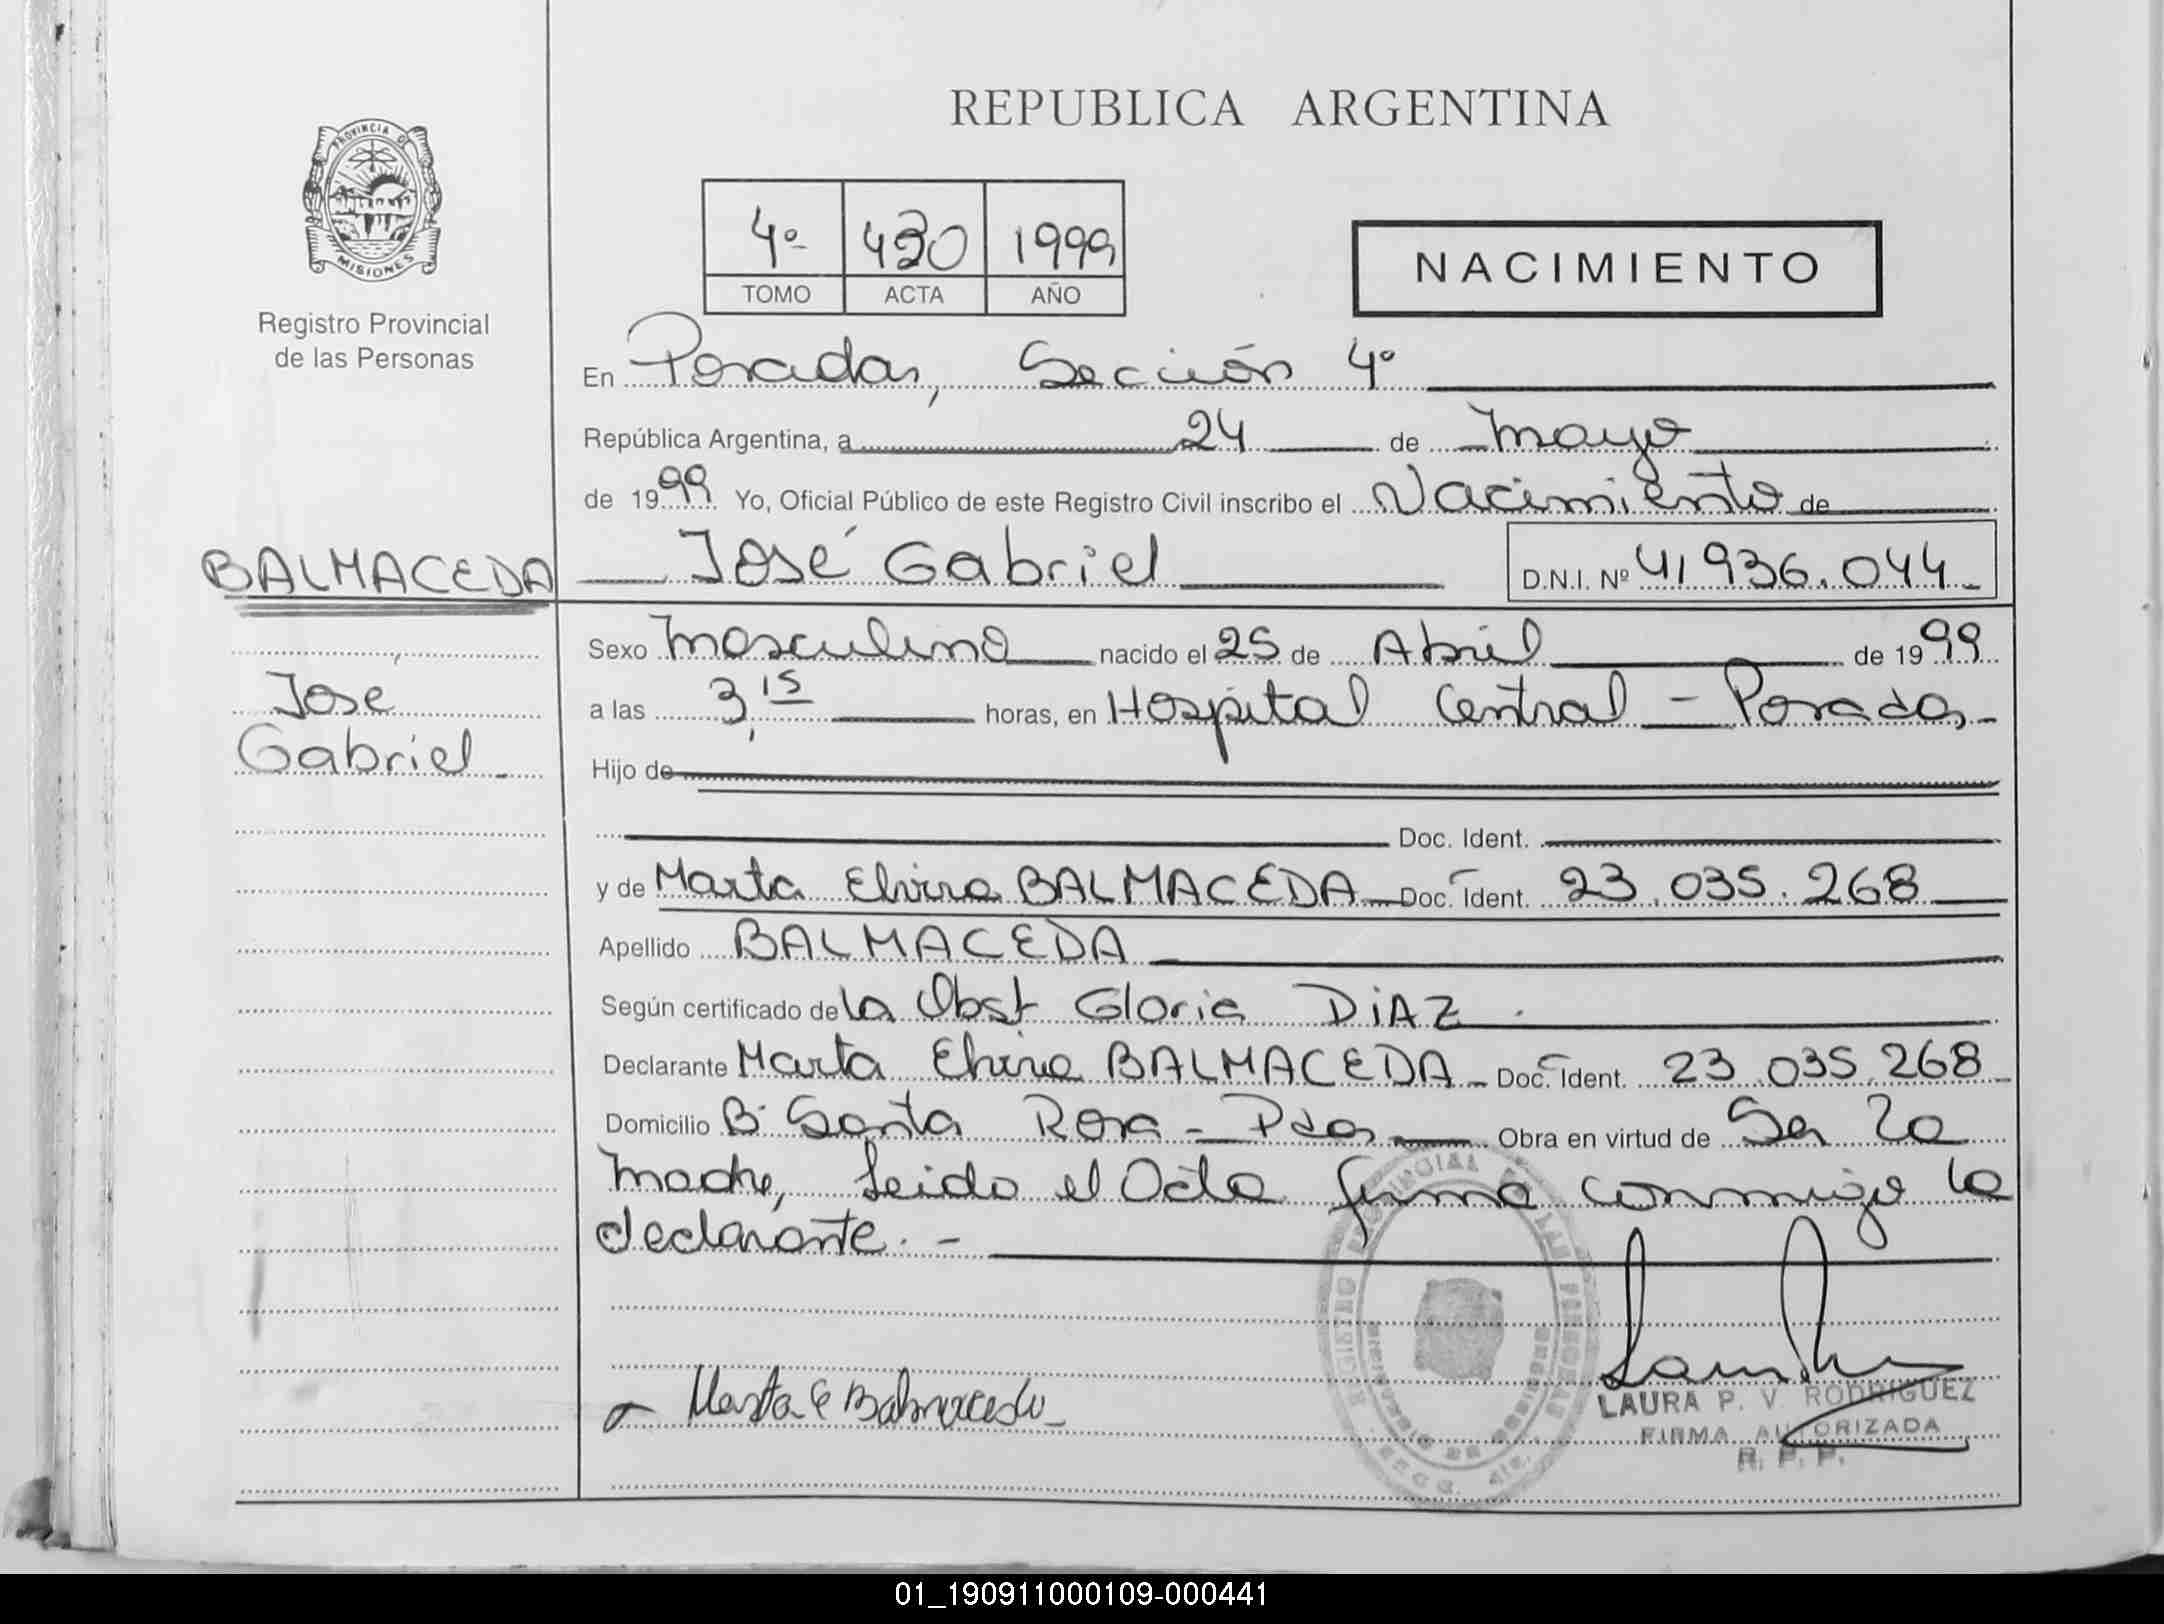 REPUBLICA ARGENTINA
PROVINCIA DE MISIONES
Registro Provincial
de las Personas
4º 430 1999
TOMO ACTA AÑO
NACIMIENTO
En Posadas, Sección 4º
República Argentina, a 24 de Mayo
de 1999 Yo, Oficial Público de este Registro Civil inscribo el Nacimiento de
BALMACEDA
José Gabriel D.N.I. Nº 41936.044
José
Gabriel
Sexo Masculino nacido el 25 de Abril de 1999
a las 3,15 horas, en Hospital Central - Posadas
Hijo de
Doc. Ident.
y de Marta Elvira BALMACEDA Doc. Ident. 23.035.268
Apellido BALMACEDA
Según certificado de la Obst Gloria DiAZ
Declarante Marta Elvira BALMACEDA Doc. Ident. 23.035.268
Domicilio Bº Santa Rosa - Pdas Obra en virtud de Ser la
Madre, Leido el Acta firma conmigo la
declarante. -
Marta E Balmaceda
LAURA P. V. RODRIGUEZ
FIRMA AUTORIZADA
R. P. P.
01_190911000109-000441